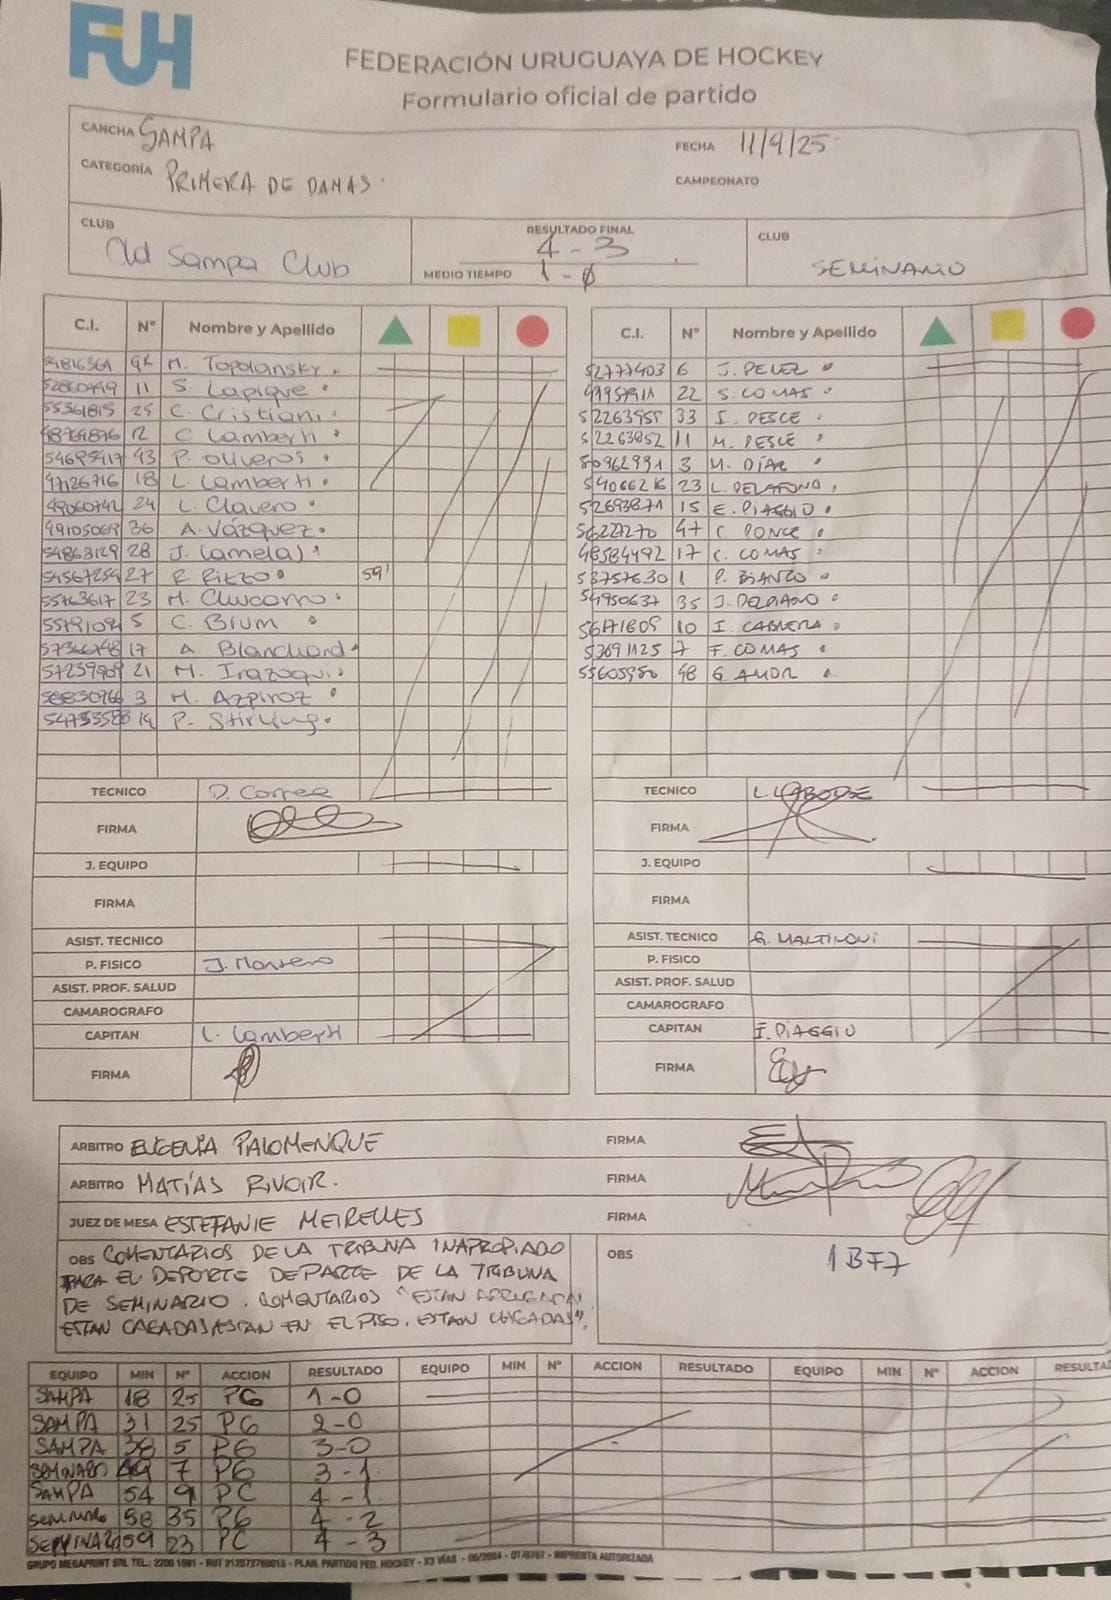 FUH
FEDERACIÓN URUGUAYA DE HOCKEY
Formulario oficial de partido
CANCHA SAMPA
FECHA 11/9/25
CATEGORÍA PRIMERA DE DAMAS.
CAMPEONATO
CLUB Old Sampa Club
RESULTADO FINAL 4-3
MEDIO TIEMPO 1-0
CLUB SEMINARIO
C.I. Nº Nombre y Apellido
M. Topolansky
11 S. Lapique
55361815 25 C. Cristiani
12 C Lamberti
43 P. Oliveros
47126716 18 L. Lamberti
49060742 24 L. Clavero
49105069 36 A. Vázquez
54863129 28 J. Camelas
54567254 27 R. Rizzo 59'
55763617 23 M. Chucarro
5 C. Brum
17 A Blanchard
21 M. Irazoqui
3 M. Azpiroz
P. Stirling
TECNICO D. Correa
FIRMA
J. EQUIPO
FIRMA
ASIST. TECNICO
P. FISICO J. Montero
ASIST. PROF. SALUD
CAMAROGRAFO
CAPITAN L. Lamberti
FIRMA
C.I. Nº Nombre y Apellido
52777403 6 J. PELEZ
22 S. COMAS
52263955 33 I. PESCE
52263852 11 M. PESCE
3 M. DÍAZ
54066216 23 L. DELAFOND
52693871 15 E. PIAGGIO
56227270 47 C. PONCE
48584492 17 C. COMAS
53757630 1 P. BIANCO
54950637 35 J.
10 I. CABRERA
53691125 7 F. COMAS
55605950 48 G. AMOR
TECNICO L. LABORDE
FIRMA
J. EQUIPO
FIRMA
ASIST. TECNICO G.
P. FISICO
ASIST. PROF. SALUD
CAMAROGRAFO
CAPITAN E. PIAGGIO
FIRMA
ARBITRO EUGENIA PALOMENQUE FIRMA
ARBITRO MATÍAS RIVOIR. FIRMA
JUEZ DE MESA ESTEFANIE MEIRELLES FIRMA
OBS COMENTARIOS DE LA TRIBUNA INAPROPIADO
PARA EL DEPORTE DE PARTE DE LA TRIBUNA
DE SEMINARIO. COMENTARIOS "ESTAN
ESTAN CAGADAS, ESTAN EN EL PISO, ESTAN CAGADAS".
OBS 1BF7
EQUIPO MIN Nº ACCION RESULTADO EQUIPO MIN Nº ACCION RESULTADO EQUIPO MIN Nº ACCION RESULTA
SAMPA 18 25 PG 1-0
SAMPA 31 25 PG 2-0
SAMPA 38 5 PG 3-0
SEMINARIO 49 7 PG 3-1
SAMPA 54 9 PC 4-1
SEMINARIO 58 35 PG 4-2
SEMINARIO 59 23 PC 4-3
GRUPO MEGAPRINT SRL TEL.: 2200 1991 - RUT 212572760015 - PLAN. PARTIDO FED. HOCKEY - X3 VÍAS - 06/2024 - IMPRENTA AUTORIZADA